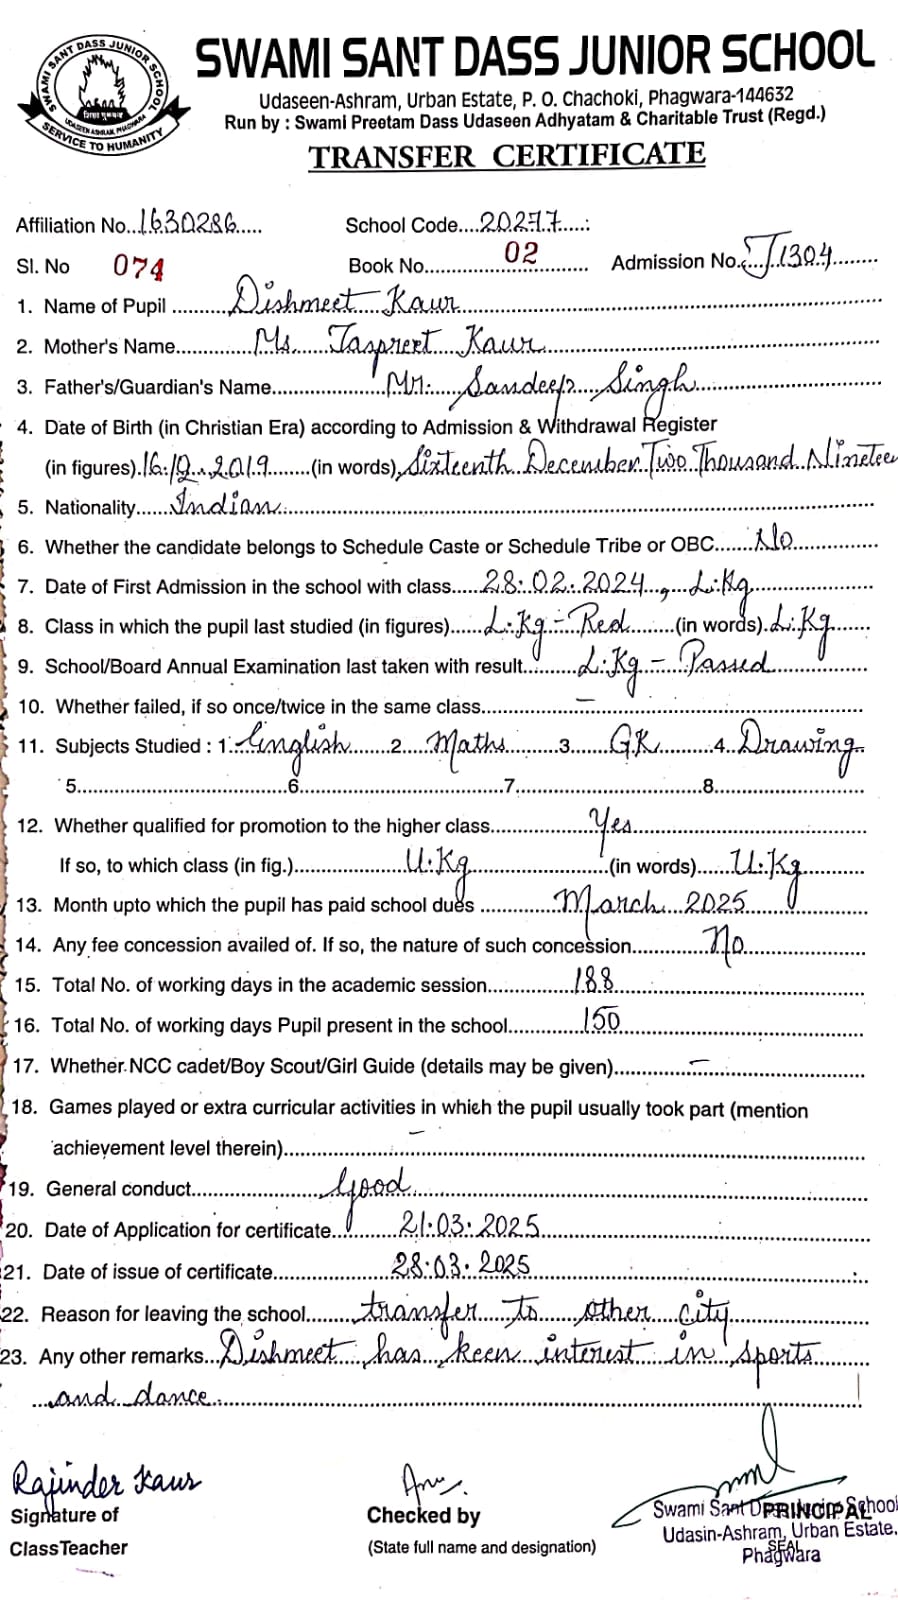 SWAMI SANT DASS JUNIOR SCHOOL
SWAMI SANT DASS JUNIOR SCHOOL
UDASEEN ASHRAM, PHAGWARA
SERVICE TO HUMANITY
Udaseen-Ashram, Urban Estate, P. O. Chachoki, Phagwara-144632
Run by : Swami Preetam Dass Udaseen Adhyatam & Charitable Trust (Regd.)
TRANSFER CERTIFICATE
Affiliation No. 1630286 School Code 20277
Sl. No 074 Book No. 02 Admission No. J/1304
1. Name of Pupil Dishmeet Kaur
2. Mother's Name Ms. Jaspreet Kaur
3. Father's/Guardian's Name Mr. Sandeep Singh
4. Date of Birth (in Christian Era) according to Admission & Withdrawal Register
(in figures) 16.12.2019 (in words) Sixteenth December Two Thousand Nineteen
5. Nationality Indian
6. Whether the candidate belongs to Schedule Caste or Schedule Tribe or OBC No
7. Date of First Admission in the school with class 28.02.2024, L.Kg
8. Class in which the pupil last studied (in figures) L.Kg - Red (in words) L.Kg
9. School/Board Annual Examination last taken with result L.Kg - Passed
10. Whether failed, if so once/twice in the same class —
11. Subjects Studied : 1. English 2. Maths 3. GK 4. Drawing
5. 6. 7. 8.
12. Whether qualified for promotion to the higher class Yes
If so, to which class (in fig.) U.Kg (in words) U.Kg
13. Month upto which the pupil has paid school dues March 2025
14. Any fee concession availed of. If so, the nature of such concession No
15. Total No. of working days in the academic session 188
16. Total No. of working days Pupil present in the school 150
17. Whether NCC cadet/Boy Scout/Girl Guide (details may be given) —
18. Games played or extra curricular activities in which the pupil usually took part (mention
achievement level therein) —
19. General conduct Good
20. Date of Application for certificate 21.03.2025
21. Date of issue of certificate 28.03.2025
22. Reason for leaving the school transfer to other city
23. Any other remarks Dishmeet has keen interest in sports
and dance
Rajinder Kaur
Signature of
ClassTeacher
Checked by
(State full name and designation)
PRINCIPAL
SEAL
Swami Sant School
Udasin-Ashram, Urban Estate.
Phagwara